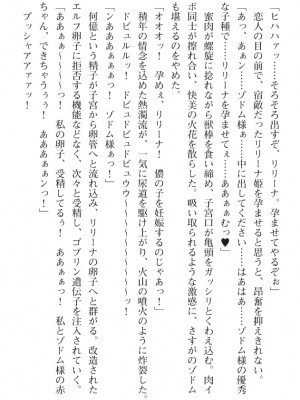 「ヒハハァッ……そろそろ出すぞ、リリーナ。孕ませてやるぞぉ」
恋人の目の前で、宿敵だったリリーナ姫を孕ませると思うと、昂奮を抑えきれない。
「あっ、あぁんっ……ゾドム様ぁ……中に出してください……はぁはぁ……ゾドム様の優秀
な子種で……リリーナを孕ませてぇ……あぁぁむっつ♥」
蜜肉が螺旋に捻れながら獣棒を食い締め、子宮口が亀頭をガッシリとくわえ込む。肉イ
ボ同士が擦れ合い、快美の火花を散らした。吸い取られるような激感に、さすがのゾドム
も堪えるのをやめた。
「オオオッ！　孕めぇ、リリーナ！　儂の子を妊娠するのじゃあっ！」
積年の情念を込めた熱濁流が、一気に尿道を駆け上がり、火山の噴火のように炸裂した。
ドビュルルッ！　ドビュドビュドビュウウ～～～～～～～～ッ！
「んああぁぁぁ～～～～～っ！　ゾドム様ぁっ！」
何億という精子が子宮から卵管へと流れ込み、リリーナの卵子へと群がる。改造された
エルフ卵子に拒否する機能などなく、次々と受精し、ゴブリン遺伝子を注入されていく。
「あああぁぁっ～～～～っ！　私の卵子、受精してるぅ！　あぁぁぁっ！　私とゾドム様の赤
ちゃん、できちゃうぅぅっ！　ああぁぁぁンっ！」
ブッシャアアアッ！